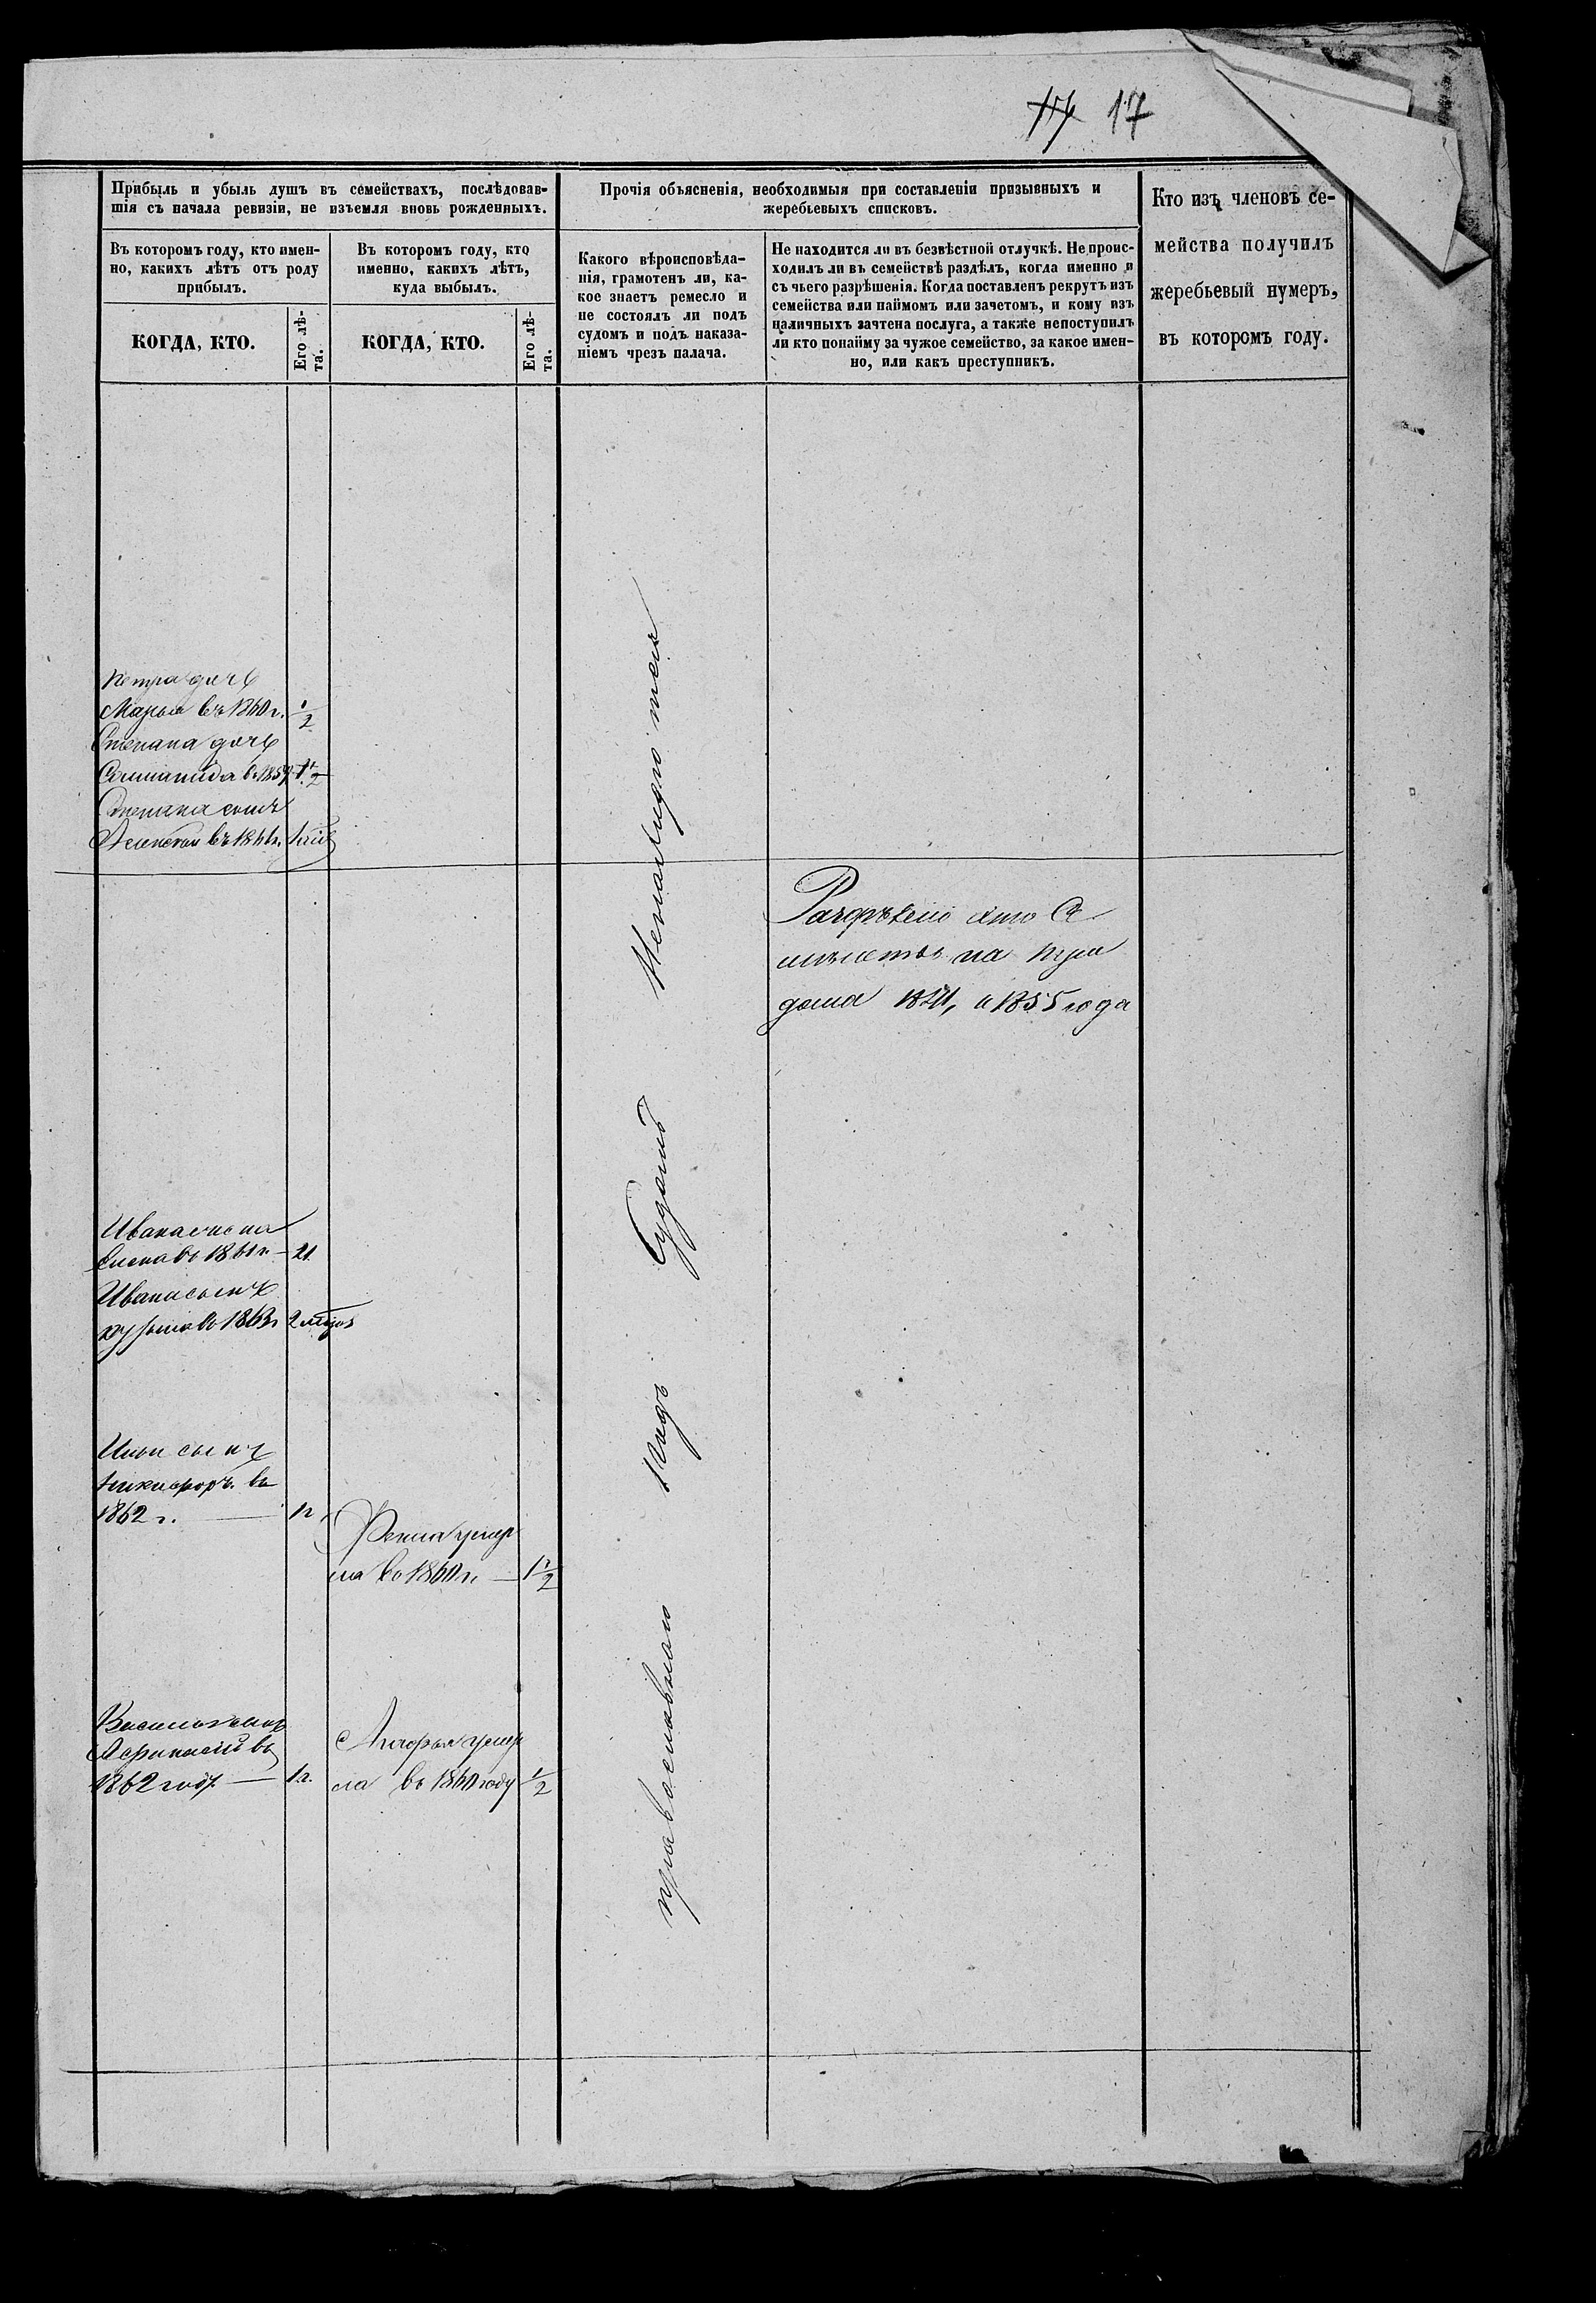 17
Прибыль и убыль душъ въ семействахъ, послѣдовав-
шія съ начала ревизіи, не изъемля вновь рожденныхъ.
Въ которомъ году, кто имен-
но, какихъ лѣтъ отъ роду
прибылъ.
КОГДА, КТО.
Его лѣ-
та.
Въ которомъ году, кто
именно, какихъ лѣтъ,
куда выбылъ.
КОГДА, КТО.
Его лѣ-
та.
Прочія объясненія, необходимыя при составленіи призывныхъ и
жеребьевыхъ списковъ.
Какого вѣроисповѣда-
нія, грамотенъ ли, ка-
кое знаетъ ремесло и
не состоялъ ли подъ
судомъ и подъ наказа-
ніемъ чрезъ палача.
Не находится ли въ безвѣстной отлучкѣ. Не проис-
ходилъ ли въ семействѣ раздѣлъ, когда именно и
съ чьего разрѣшенія. Когда поставленъ рекрутъ изъ
семейства или наймомъ или зачетомъ, и кому изъ
наличныхъ зачтена послуга, а также непоступилъ
ли кто понайму за чужое семейство, за какое имен-
но, или какъ преступникъ.
Кто изъ членовъ се-
мейства получилъ
жеребьевый нумеръ,
въ которомъ году.
Петра дочь
Марья въ 1860 г. 1/2
Степана дочь
въ 1859 1 1/2
Степана сынъ
Ивана
въ 1861 г. 21
Ивана сынъ
въ 1863 г 2
Ильи сынъ
Никифоръ въ
1862 г. 1 г.
умер
ла въ 1860 г. 1 1/2
Василья сынъ
Афанасій въ
1862 году 1 г.
умер
ла въ 1860 году 1/2
православнаго подъ Судомъ
Раздѣлено это Се
мѣйство на три
дома и 1855 года